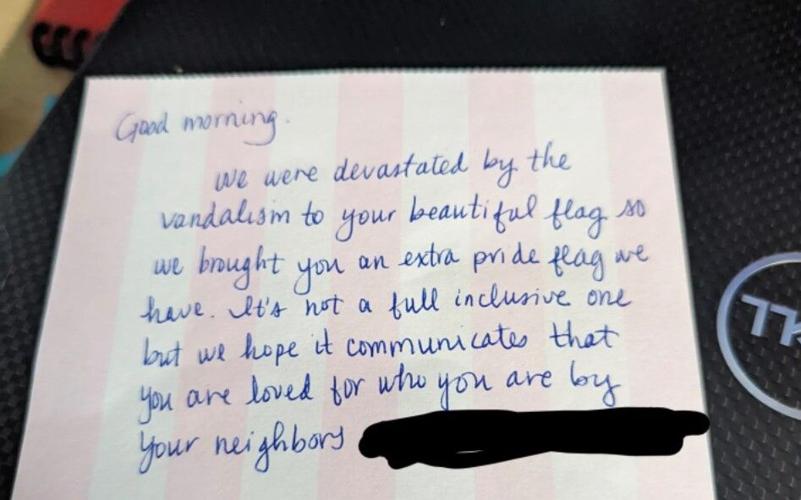 Good morning.
We were devastated by the
vandalism to your beautiful flag so
we brought you an extra pride flag we
have. It's not a full inclusive one
but we hope it communicates that
you are loved for who you are by
your neighbors